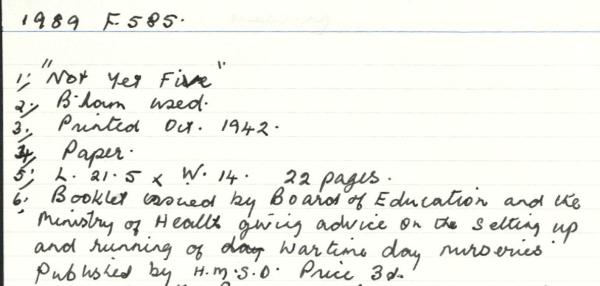 1989 F 585.
1; "Not Yet Five"
2; B'ham used.
3; Printed Oct. 1942.
4; Paper.
5; L. 21.5 x W. 14. 22 pages.
6; Booklet issued by Board of Education and the
Ministry of Health giving advice on the setting up
and running of day wartime day nurseries.
Published by H.M.S.O. Price 3d.